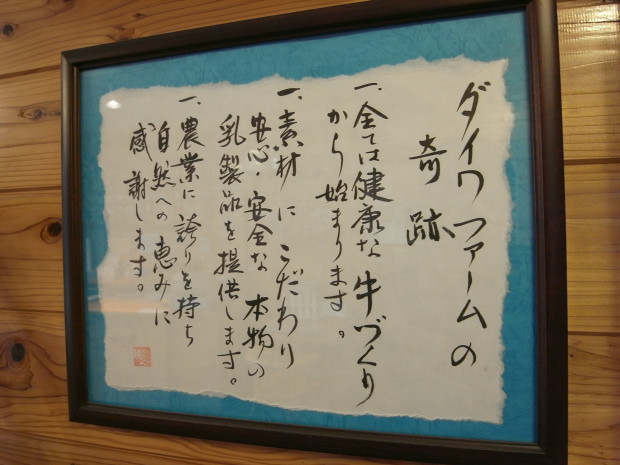 ダイワファームの
奇跡
一、全ては健康な牛づくり
から始まります。
一、素材にこだわり
安心・安全な本物の
乳製品を提供します。
一、農業に誇りを持ち
自然への恵みに
感謝します。